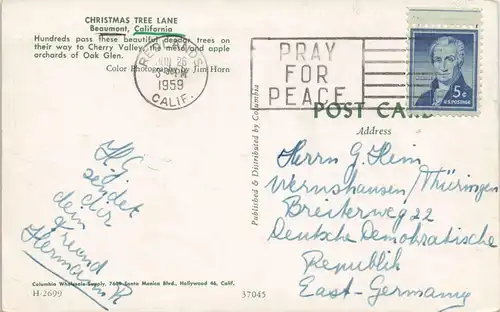 CHRISTMAS TREE LANE
Beaumont, California
Hundreds pass these beautiful deodar trees on
their way to Cherry Valley, the mesa and apple
orchards of Oak Glen.
Color Photography by Jim Horn
REDLANDS
JUN 26
1959
CALIF.
PRAY
FOR
PEACE
5¢
U.S. POSTAGE
POST CARD
Address
Published & Distributed by Columbia
Hg
sendet
dir
dein
Freund
Hermann R
Herrn G. Heim
Wernshausen/Thüringen
Breiterweg 22
Deutsche Demokratische
Republik
East-Germany
Columbia Wholesale Supply, 7609 Santa Monica Blvd., Hollywood 46, Calif.
H-2699
37045